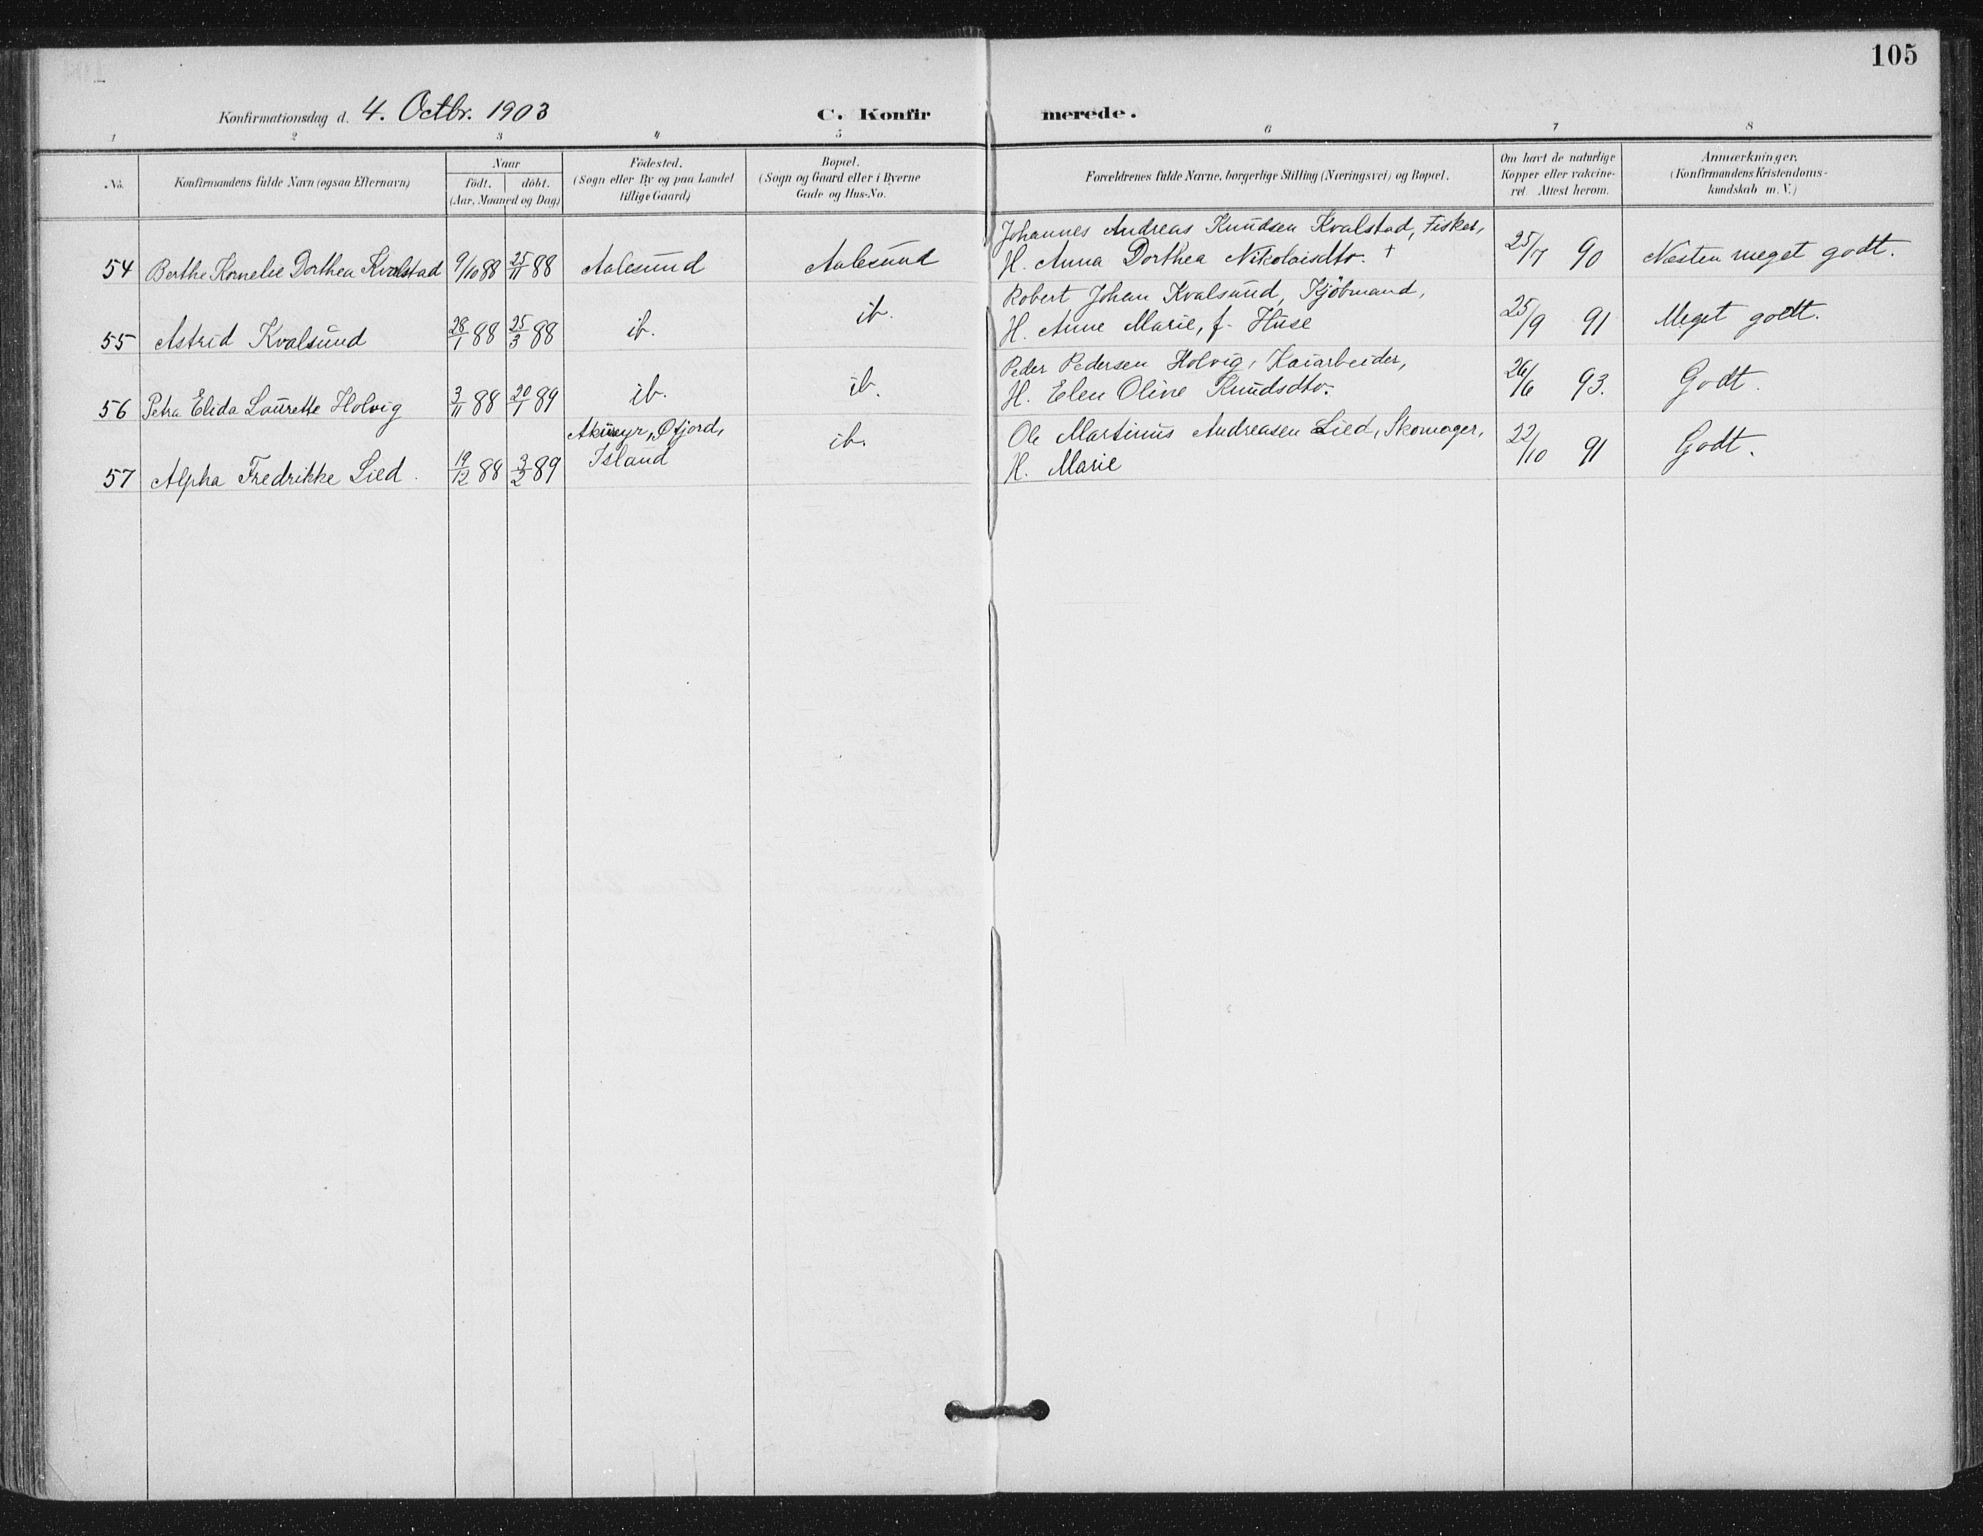 105
Konfirmationsdag d. 4. Octbr. 1903 C. Konfirmerede.
1 2 3 4 5 6 7 8
No.
Konfirmandens fulde Navn (ogsaa Efternavn)
Naar
födt. döbt.
(Aar, Maaned og Dag)
Födested.
(Sogn eller By og paa Landet
tillige Gaard)
Bopæl.
(Sogn og Gaard eller i Byerne
Gade og Hus-No.
Forældrenes fulde Navne, borgerlige Stilling (Næringsvei) og Bopæl.
Om havt de naturlige
Kopper eller vakcine-
ret. Attest herom.
Anmærkninger.
(Konfirmandens Kristendoms-
kundskab m. V.)
Johannes Andreas Knudsen Kvalstad, Fisker,
54 Berthe Kornelie Dorthea Kvalstad 9/10 88 25/11 88 Aalesund Aalesund H. Anna Dorthea Nikolaisdtr. † 25/7 90 Næsten meget godt.
Robert Johan Kvalsund, Kjöbmand,
55 Astrid Kvalsund 28/1 88 25/3 88 ib. ib. H. Anne Marie, f. Huse 25/9 91 Meget godt.
Peder Pedersen Holvig, Kaiarbeider,
56 Petra Elida Laurette Holvig 3/11 88 20/1 89 ib. ib. H. Elen Oline Knudsdtr. 26/6 93. Godt.
Akureyr, Öfjord, Ole Martinus Andreasen Lied, Skomager,
57 Alpha Fredrikke Lied. 19/12 88 3/2 89 Island ib. H. Marie 22/10 91 Godt.